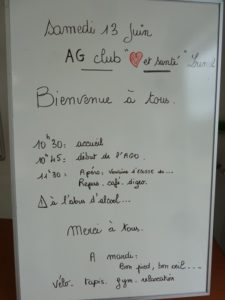 Samedi 13 Juin
AG club "♥ et santé" Lunel
Bienvenue à tous.
10h30: accueil
10h45: début de l'AGO.
11h30: Apéro: Vanina s'élasse de....
Repas. café. digeo.
⚠ à l'abus d'alcool....
Merci à tous.
A mardi:
Bon pied, bon oeil....
Vélo. Tapis. gym. relaxation